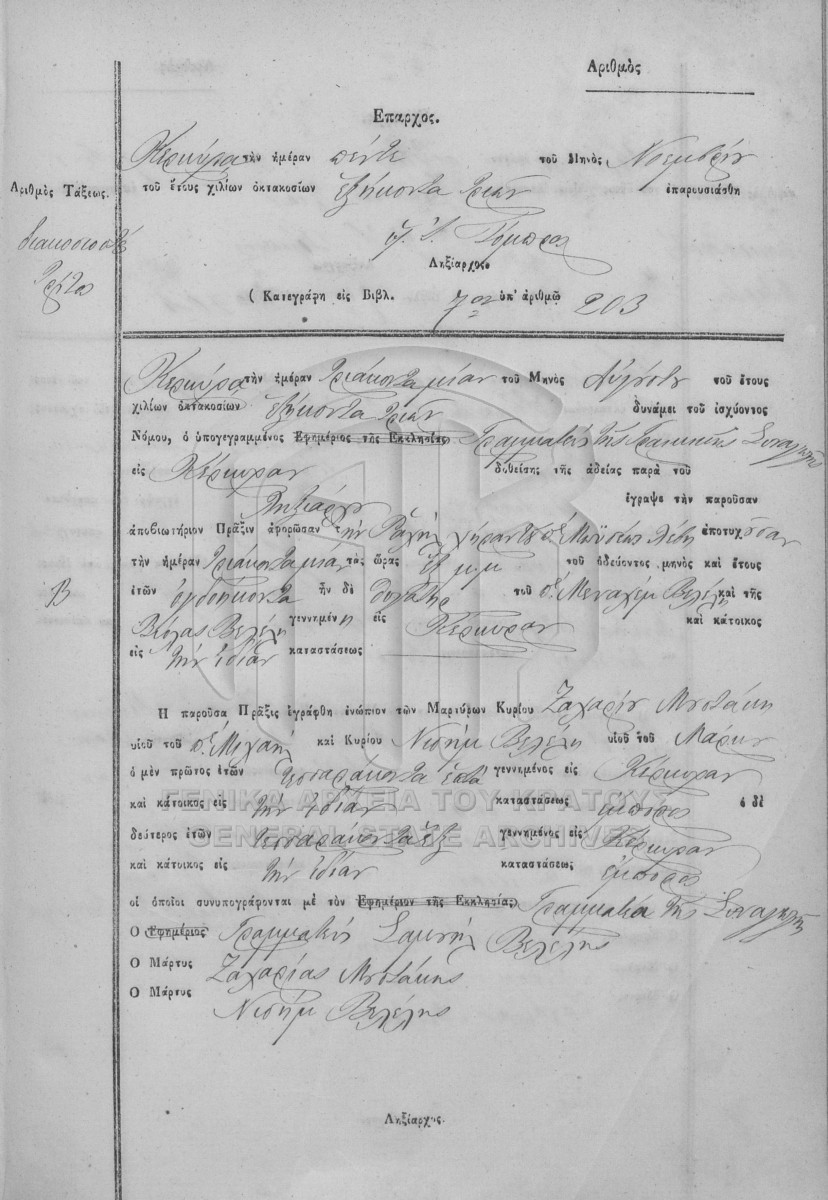 Αριθμὸς
Επαρχος.
Κερκύρα τὴν ἡμέραν πέντε τοῦ Μηνὸς Νοεμβρίου
Αριθμὸς Τάξεως. τοῦ ἔτους χιλίων ὀκτακοσίων ἑξήκοντα τριῶν ἐπαρουσιάσθη
διακοσιοστὸ
τρίτο
Ληξίαρχος
( Κατεγράφη εἰς Βιβλ. 7ον ὑπ' ἀριθμῷ 203
Κερκύρα τὴν ἡμέραν τριάκοντα μίαν τοῦ Μηνὸς Αὐγούστου τοῦ ἔτους
χιλίων ὀκτακοσίων ἑξήκοντα τριῶν δυνάμει τοῦ ἰσχύοντος
Νόμου, ὁ ὑπογεγραμμένος Εφημέριος τῆς Εκκλησίας Γραμματεὺς τῆς Συναγωγῆς
εἰς Κέρκυραν δοθείσης τῆς ἀδείας παρὰ τοῦ
Ληξιάρχου ἔγραψε τὴν παροῦσαν
ἀποβιωτήριον Πρᾶξιν ἀφορῶσαν τὴν Ραχὴλ χήραν τοῦ Μωϋσέως Λέβη ἀποτυχοῦσαν
τὴν ἡμέραν τριάκοντα μίαν τὰς ὥρας ἓξ μ.μ. τοῦ ὁδεύοντος μηνὸς καὶ ἔτους
Β ἐτῶν ὀγδοήκοντα ἦν δὲ θυγάτηρ τοῦ Μεναχὲμ Βελέλη καὶ τῆς
Βιόλας Βελέλη γεννημένη εἰς Κέρκυραν καὶ κάτοικος
εἰς τὴν ἰδίαν καταστάσεως
Η παροῦσα Πρᾶξις ἐγράφθη ἐνώπιον τῶν Μαρτύρων Κυρίου Ζαχαρίου Μποτάκη
υἱοῦ τοῦ Μιχαὴλ καὶ Κυρίου Νισὴμ Βελέλη υἱοῦ τοῦ Μάρκου
ὁ μὲν πρῶτος ἐτῶν τεσσαράκοντα ἑπτὰ γεννημένος εἰς Κέρκυραν
καὶ κάτοικος εἰς τὴν ἰδίαν καταστάσεως ἔμπορος ὁ δὲ
δεύτερος ἐτῶν τεσσαράκοντα ἓξ γεννημένος εἰς Κέρκυραν
καὶ κάτοικος εἰς τὴν ἰδίαν καταστάσεως ἔμπορος
οἱ ὁποῖοι συνυπογράφονται μὲ τὸν Εφημέριον τῆς Εκκλησίας Γραμματέα τῆς Συναγωγῆς
Ο Εφημέριος Γραμματεὺς Σαμουὴλ Βελέλης
Ο Μάρτυς Ζαχαρίας Μποτάκης
Ο Μάρτυς Νισὴμ Βελέλης
Ληξίαρχος.
ΓΕΝΙΚΑ ΑΡΧΕΙΑ ΤΟΥ ΚΡΑΤΟΥΣ
GENERAL STATE ARCHIVES